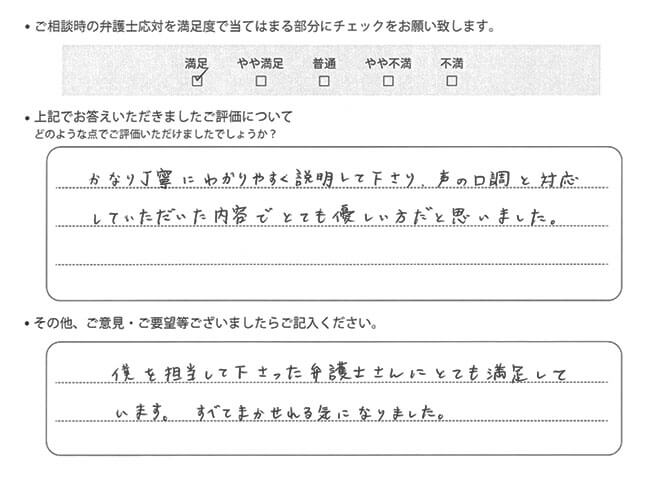 ・ご相談時の弁護士応対を満足度で当てはまる部分にチェックをお願い致します。
満足 やや満足 普通 やや不満 不満
☑ □ □ □ □
・上記でお答えいただきましたご評価について
どのような点でご評価いただけましたでしょうか？
かなり丁寧にわかりやすく説明して下さり、声の口調と対応
していただいた内容でとても優しい方だと思いました。
・その他、ご意見・ご要望等ございましたらご記入ください。
僕を担当して下さった弁護士さんにとても満足して
います。 すべてまかせれる気になりました。